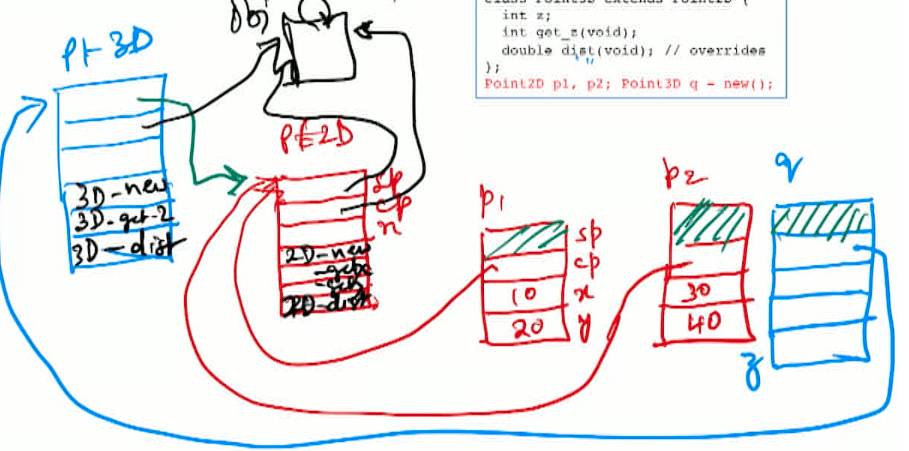 Obj
class Point3D extends Point2D {
int z;
int get_z(void);
double dist(void); // overrides
};
Point2D p1, p2; Point3D q = new();
Pt-3D
Pt-2D
3D-new
3D-get-z
3D-dist
sp
cp
n
2D-new
2D-dist
p1
sp
cp
10 x
20 y
p2
30
40
q
z